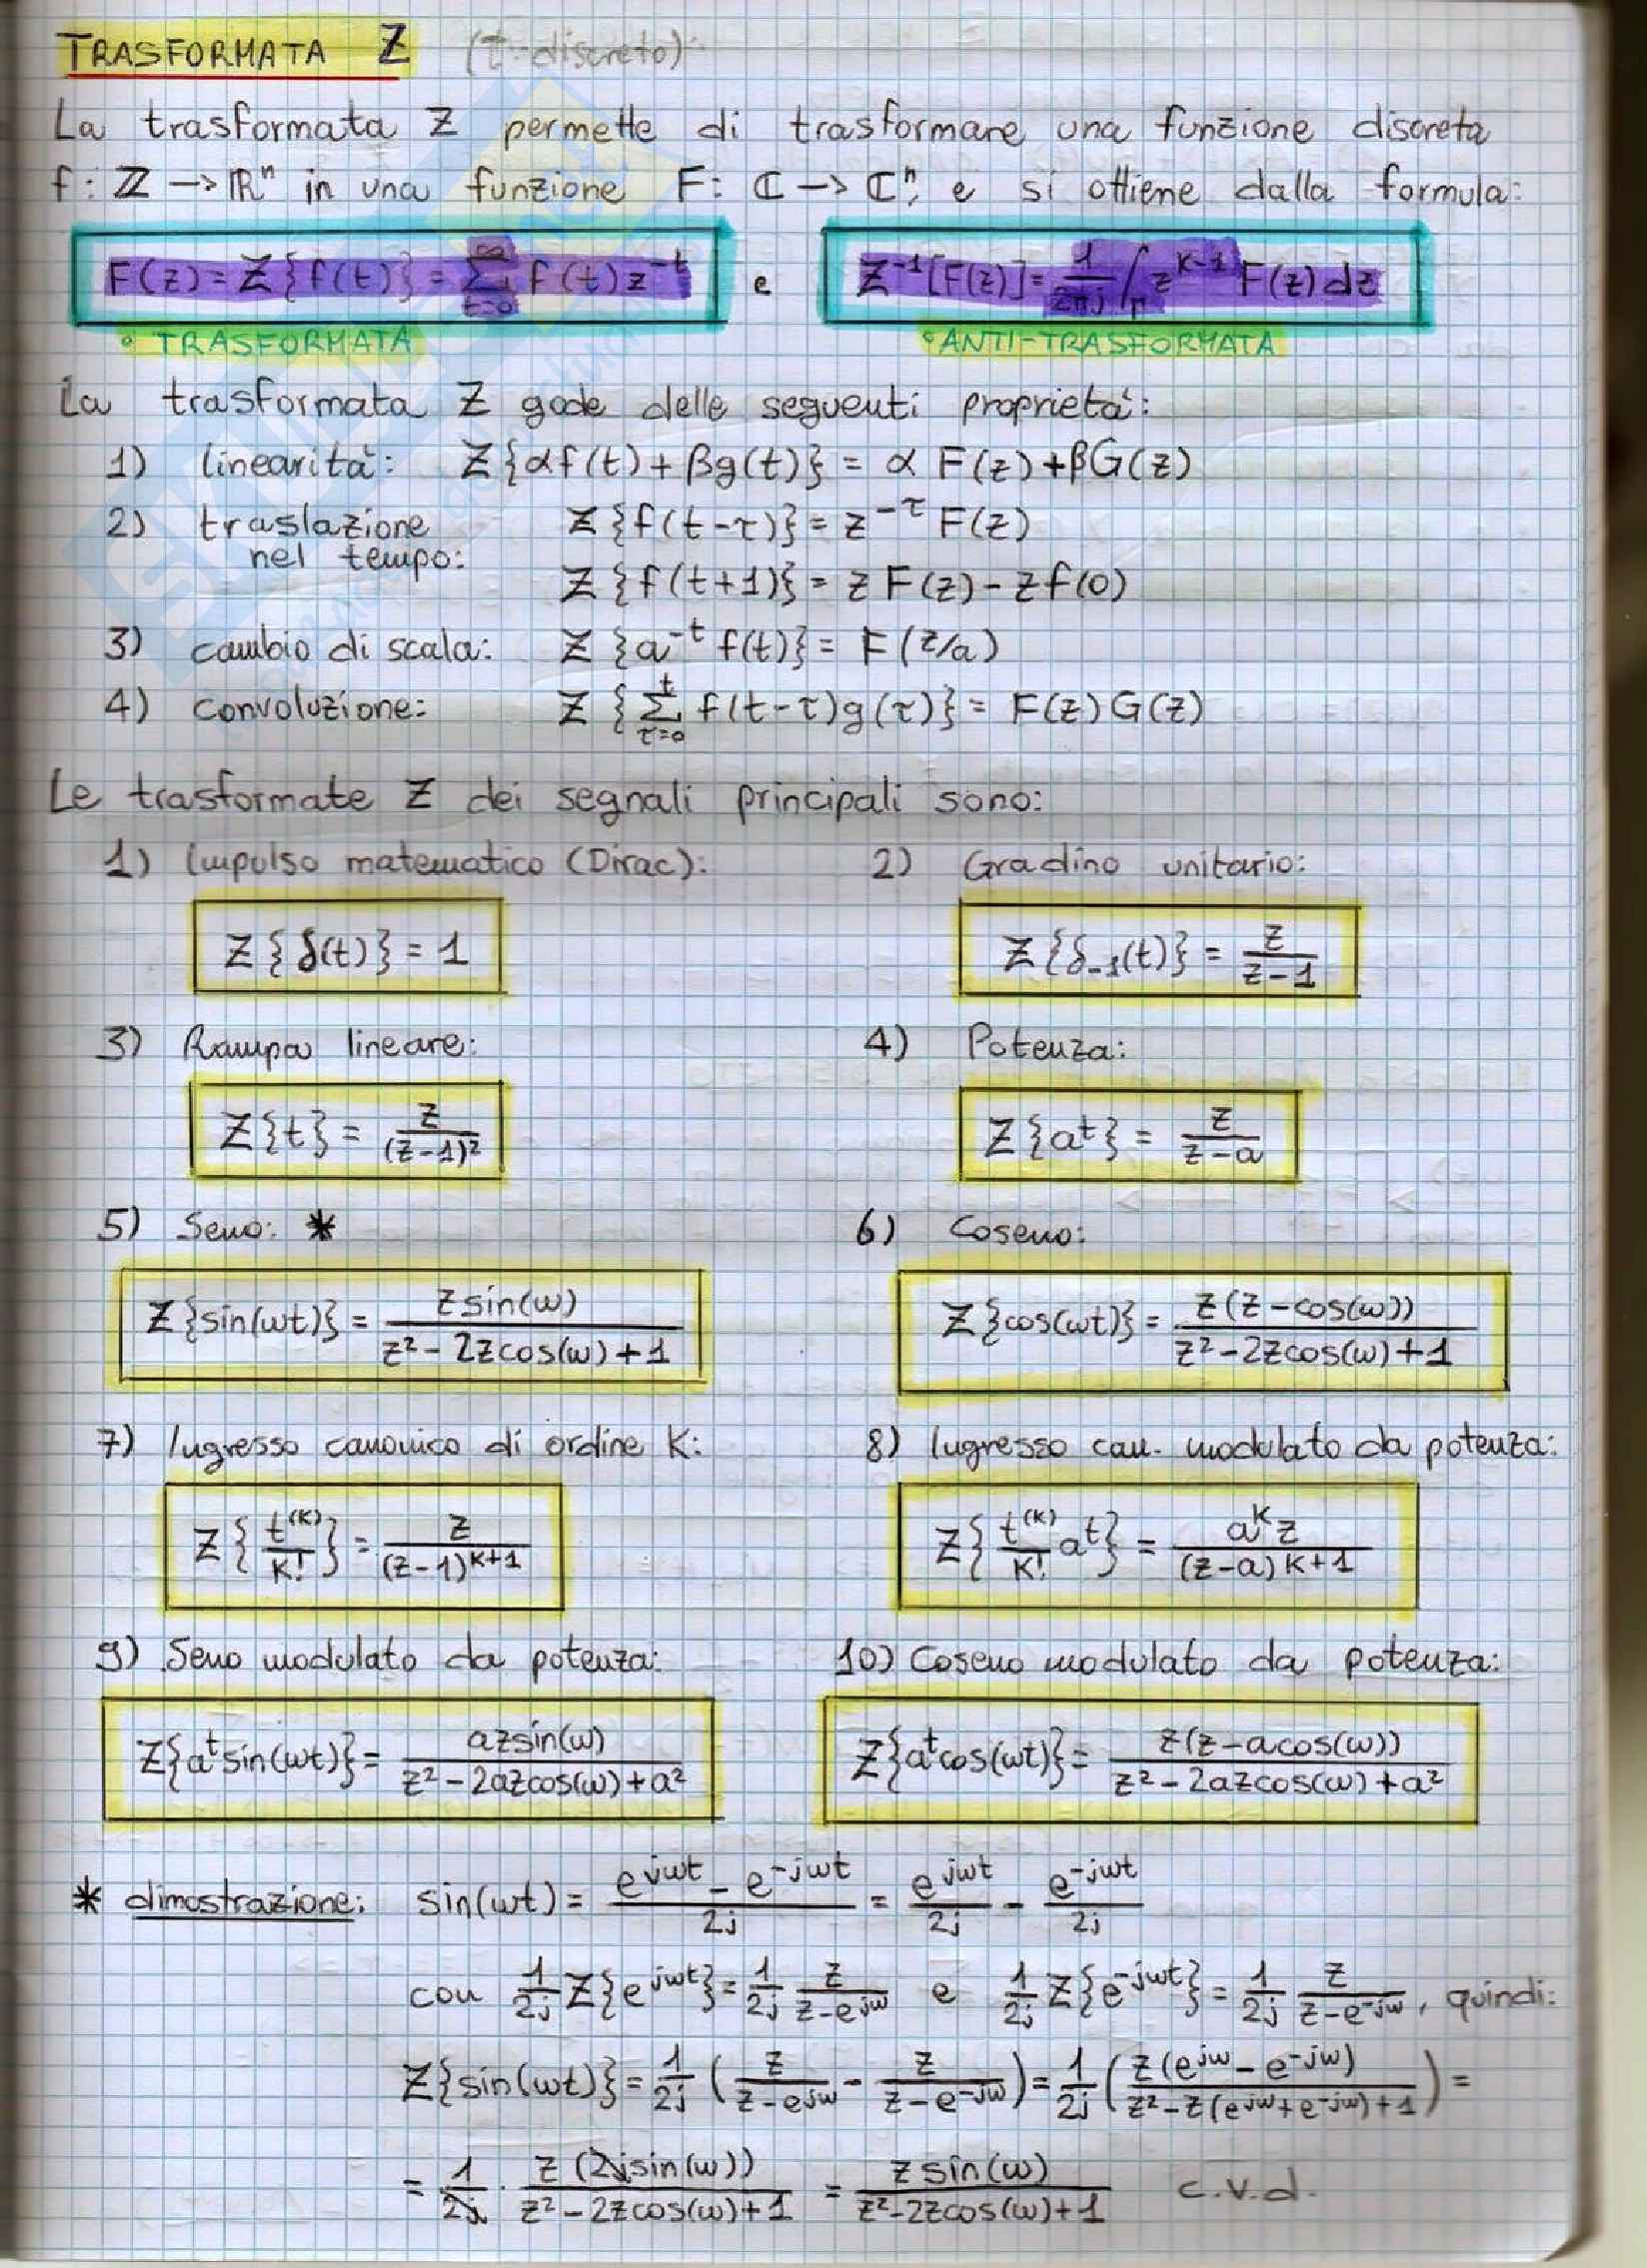 TRASFORMATA Z (t-discreto)
La trasformata Z permette di trasformare una funzione discreta
f: ℤ → ℝⁿ in una funzione F: ℂ → ℂⁿ, e si ottiene dalla formula:
F(z) = Z{f(t)} = ∑_{t=0}^{∞} f(t) z^{-t} e Z^{-1}[F(z)] = 1/(2πj) ∫_Γ z^{K-1} F(z) dz
• TRASFORMATA • ANTI-TRASFORMATA
La trasformata Z gode delle seguenti proprietà:
1) linearità: Z{αf(t) + βg(t)} = α F(z) + βG(z)
2) traslazione Z{f(t-τ)} = z^{-τ} F(z)
nel tempo:
Z{f(t+1)} = z F(z) - z f(0)
3) cambio di scala: Z{a^{-t} f(t)} = F(z/a)
4) convoluzione: Z{∑_{τ=0}^{t} f(t-τ)g(τ)} = F(z) G(z)
Le trasformate Z dei segnali principali sono:
1) Impulso matematico (Dirac): 2) Gradino unitario:
Z{δ(t)} = 1 Z{δ_{-1}(t)} = z/(z-1)
3) Rampa lineare: 4) Potenza:
Z{t} = z/(z-1)² Z{a^t} = z/(z-a)
5) Seno: * 6) Coseno:
Z{sin(ωt)} = z sin(ω)/(z² - 2z cos(ω) + 1) Z{cos(ωt)} = z(z - cos(ω))/(z² - 2z cos(ω) + 1)
7) Ingresso canonico di ordine K: 8) Ingresso can. modulato da potenza:
Z{t^{(K)}/K!} = z/(z-1)^{K+1} Z{t^{(K)}/K! a^t} = a^K z/(z-a)^{K+1}
9) Seno modulato da potenza: 10) Coseno modulato da potenza:
Z{a^t sin(ωt)} = az sin(ω)/(z² - 2az cos(ω) + a²) Z{a^t cos(ωt)} = z(z - a cos(ω))/(z² - 2az cos(ω) + a²)
* dimostrazione: sin(ωt) = (e^{jωt} - e^{-jωt})/2j = e^{jωt}/2j - e^{-jωt}/2j
con 1/2j Z{e^{jωt}} = 1/2j z/(z-e^{jω}) e 1/2j Z{e^{-jωt}} = 1/2j z/(z-e^{-jω}), quindi:
Z{sin(ωt)} = 1/2j (z/(z-e^{jω}) - z/(z-e^{-jω})) = 1/2j (z(e^{jω} - e^{-jω})/(z² - z(e^{jω}+e^{-jω}) + 1)) =
= 1/2j · z(2j sin(ω))/(z² - 2z cos(ω) + 1) = z sin(ω)/(z² - 2z cos(ω) + 1) c.v.d.